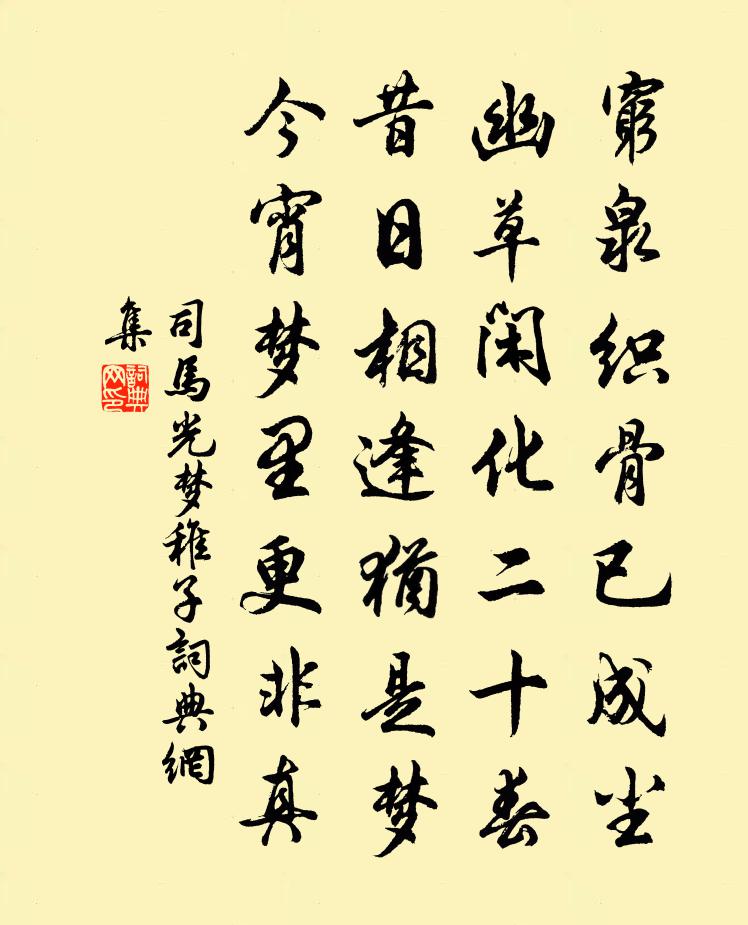 窮泉织骨已成尘
幽草闲化二十春
昔日相逢猶是梦
今宵梦里更非真
司馬光梦稚子詞典網
集
詞典
网印